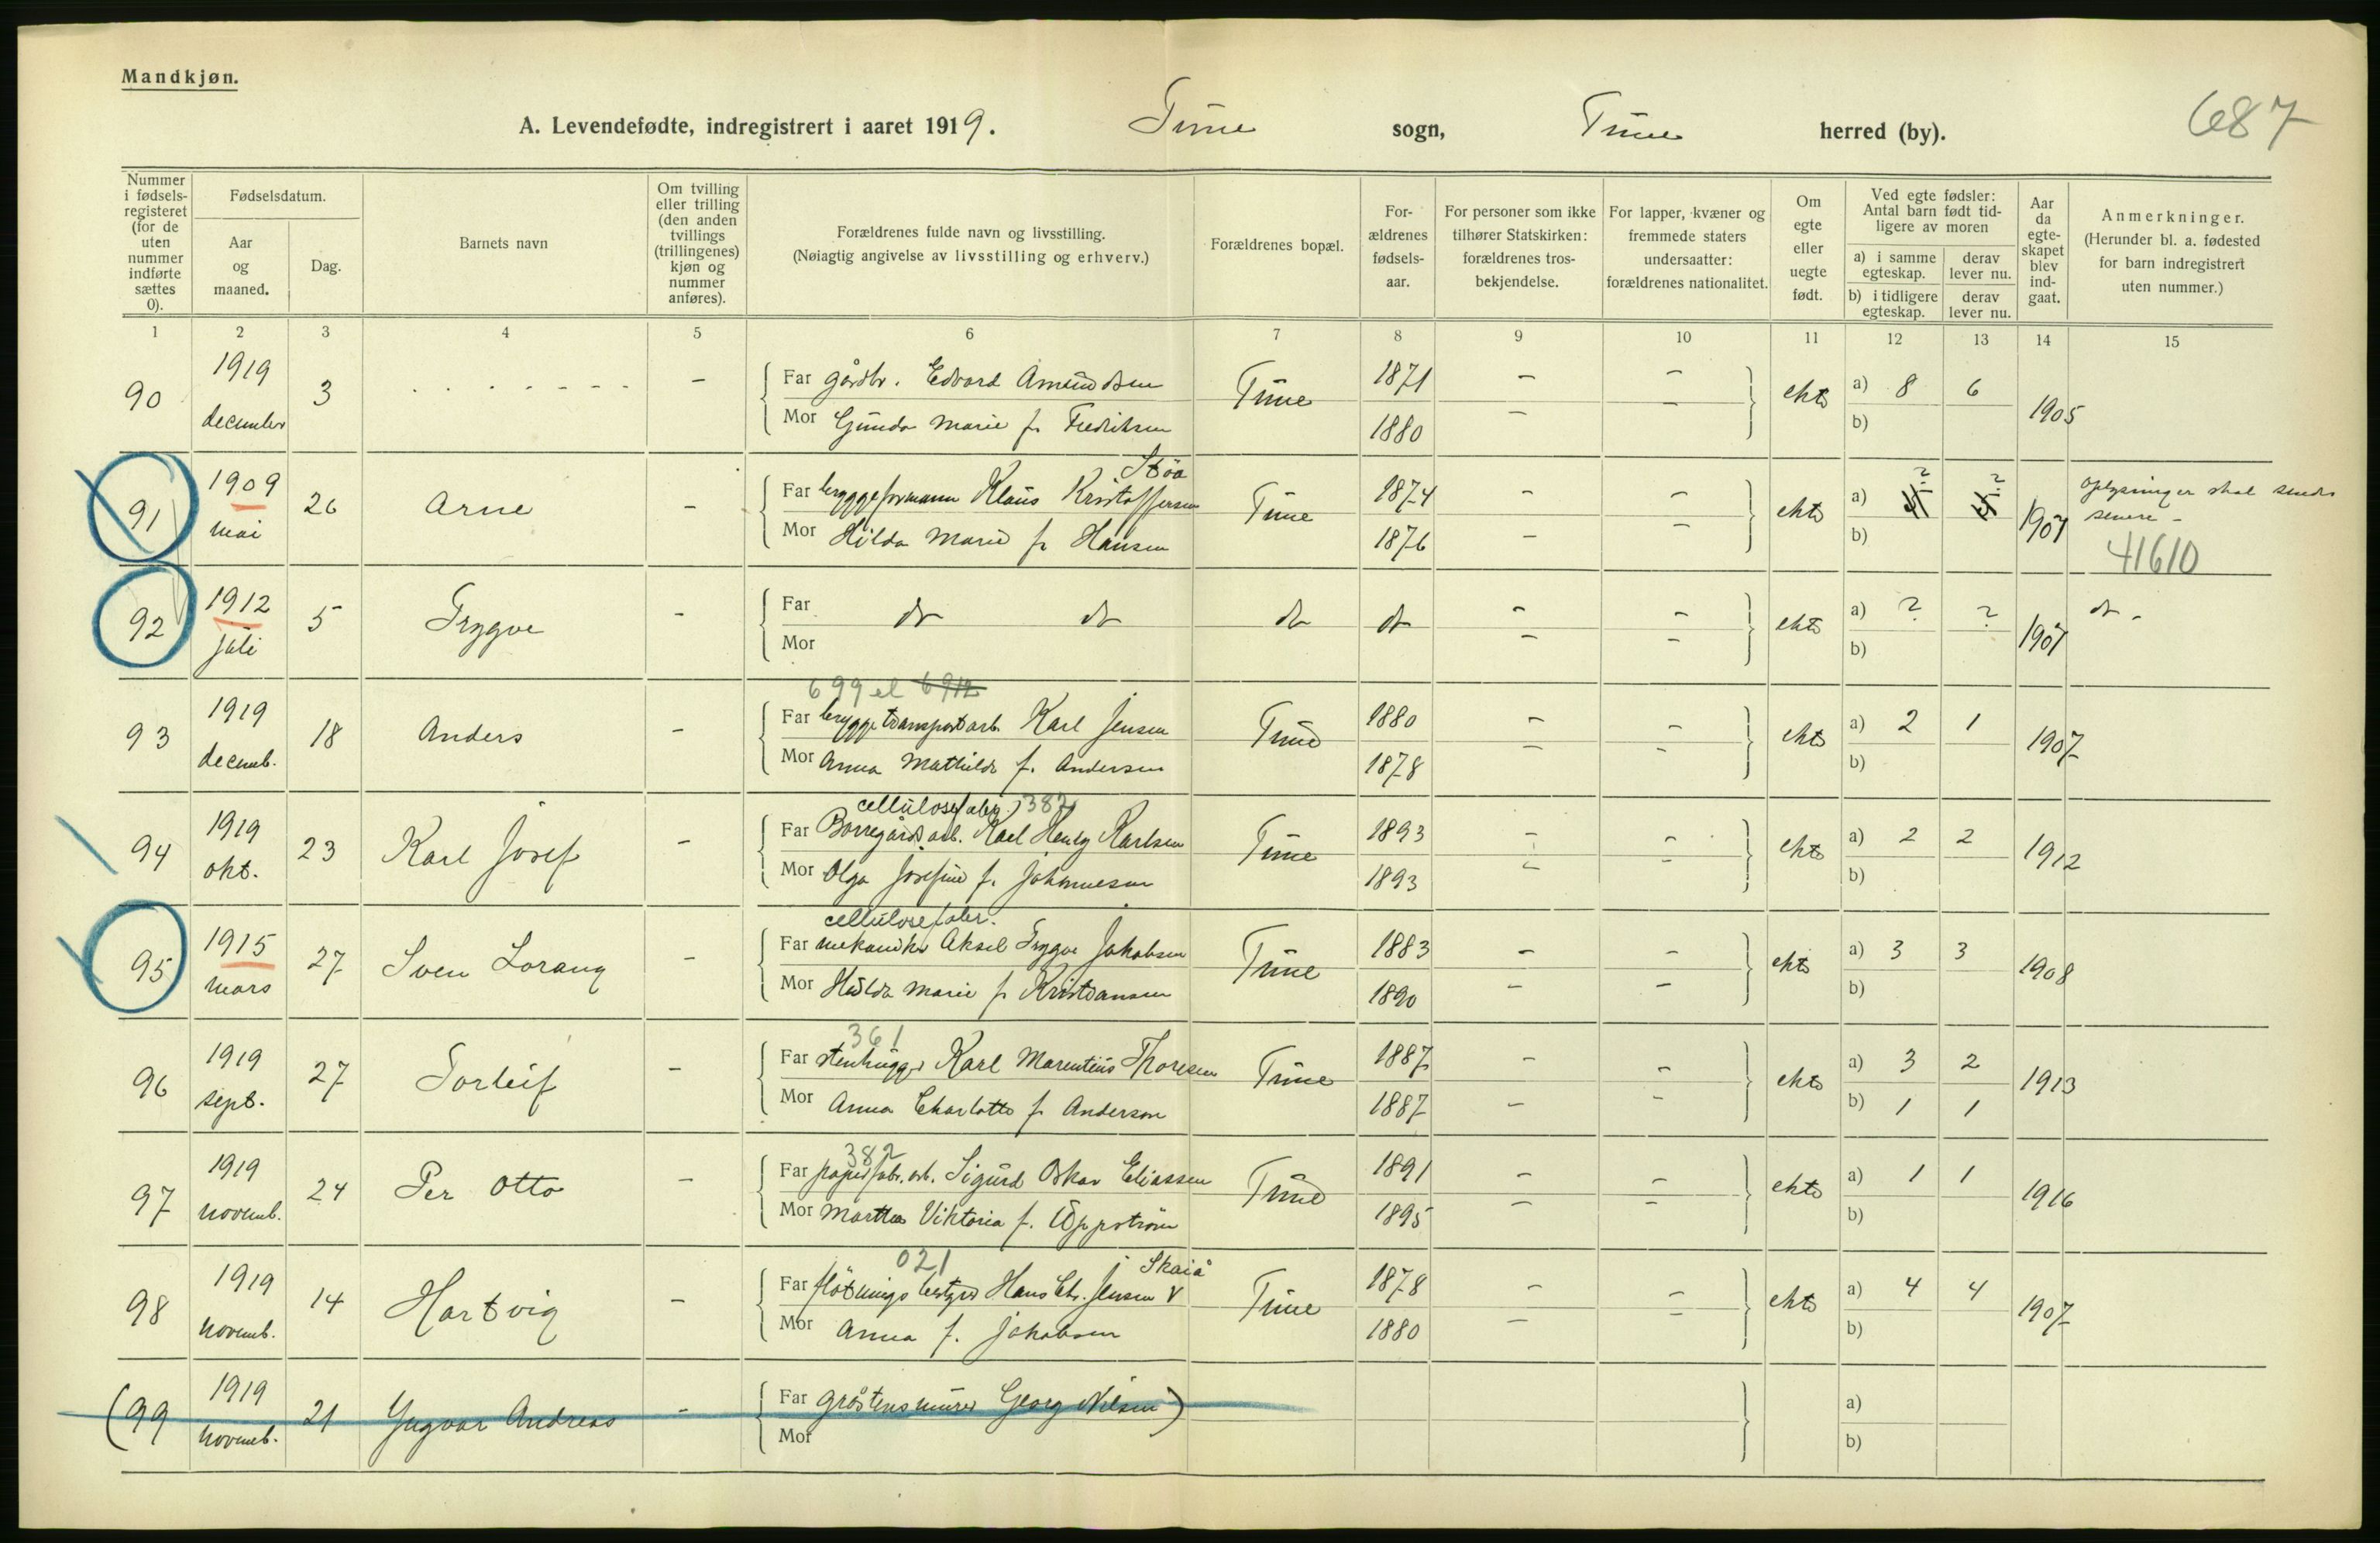 Mandkjøn.
A. Levendefødte, indregistrert i aaret 1919. Tune sogn, Tune herred (by).
687
Nummer i fødsels-registeret (for de uten nummer indførte sættes 0).
Fødselsdatum.
Aar og maaned.
Dag.
Barnets navn
Om tvilling eller trilling (den anden tvillings (trillingenes) kjøn og nummer anføres).
Forældrenes fulde navn og livsstilling.
(Nøiagtig angivelse av livsstilling og erhverv.)
Forældrenes bopæl.
For-ældrenes fødsels-aar.
For personer som ikke tilhører Statskirken: forældrenes tros-bekjendelse.
For lapper, kvæner og fremmede staters undersaatter: forældrenes nationalitet.
Om egte eller uegte født.
Ved egte fødsler: Antal barn født tid-ligere av moren
a) i samme egteskap.
derav lever nu.
b) i tidligere egteskap.
derav lever nu.
Aar da egte-skapet blev ind-gaat.
Anmerkninger.
(Herunder bl. a. fødested for barn indregistrert uten nummer.)
1 2 3 4 5 6 7 8 9 10 11 12 13 14 15
90 1919 december 3 . . . . - - - - Far gårdbr. Edvard Amundsen Tune 1871 - - ekte a) 8 6 1905
Mor Gunda Marie f. Fredriksen 1880 - - b)
Støa
91 1909 mai 26 Arne - Far bryggeformann Klaus Kristoffersen Tune 1874 - - ekte a) ? ? 1907 Oplysninger skal sendes senere -
Mor Hilda Marie f. Hansen 1876 - - b)
41610
92 1912 juli 5 Trygve - Far do do do do - - ekte a) ? ? 1907 do -
Mor - - b)
699 el
93 1919 decemb. 18 Anders - Far bryggetransportarb. Karl Jensen Tune 1880 - - ekte a) 2 1 1907
Mor Anna Mathilde f. Andersen 1878 - - b)
cellulosefabr. 382
94 1919 okt. 23 Karl Josef - Far Borregårds arb. Karl Henry Karlsen Tune 1893 - - ekte a) 2 2 1912
Mor Olga Josefine f. Johannesen 1893 - - b)
cellulosefabr.
95 1915 mars 27 Sven Lorang - Far mekaniker Aksel Trygve Jakobsen Tune 1883 - - ekte a) 3 3 1908
Mor Hulda Marie f. Kristiansen 1890 - - b)
361
96 1919 sept. 27 Torleif - Far stenhugger Karl Marentius Thoresen Tune 1887 - - ekte a) 3 2 1913
Mor Anna Charlotte f. Anderson 1887 - - b) 1 1
382
97 1919 novemb. 24 Per Otto - Far papirfabr. arb. Sigurd Oskar Eliassen Tune 1891 - - ekte a) 1 1 1916
Mor Martha Viktoria f. Uppström 1895 - - b)
021 Skaiå
98 1919 novemb. 14 Hartvig - Far flötnings bestyrer Hans Chr. Jensen V Tune 1878 - - ekte a) 4 4 1907
Mor Anna f. Jakobsen 1880 - - b)
(99 1919 novemb. 21 Yngvar Andreas - Far gråstensmurer Georg Nilsen) a)
Mor b)